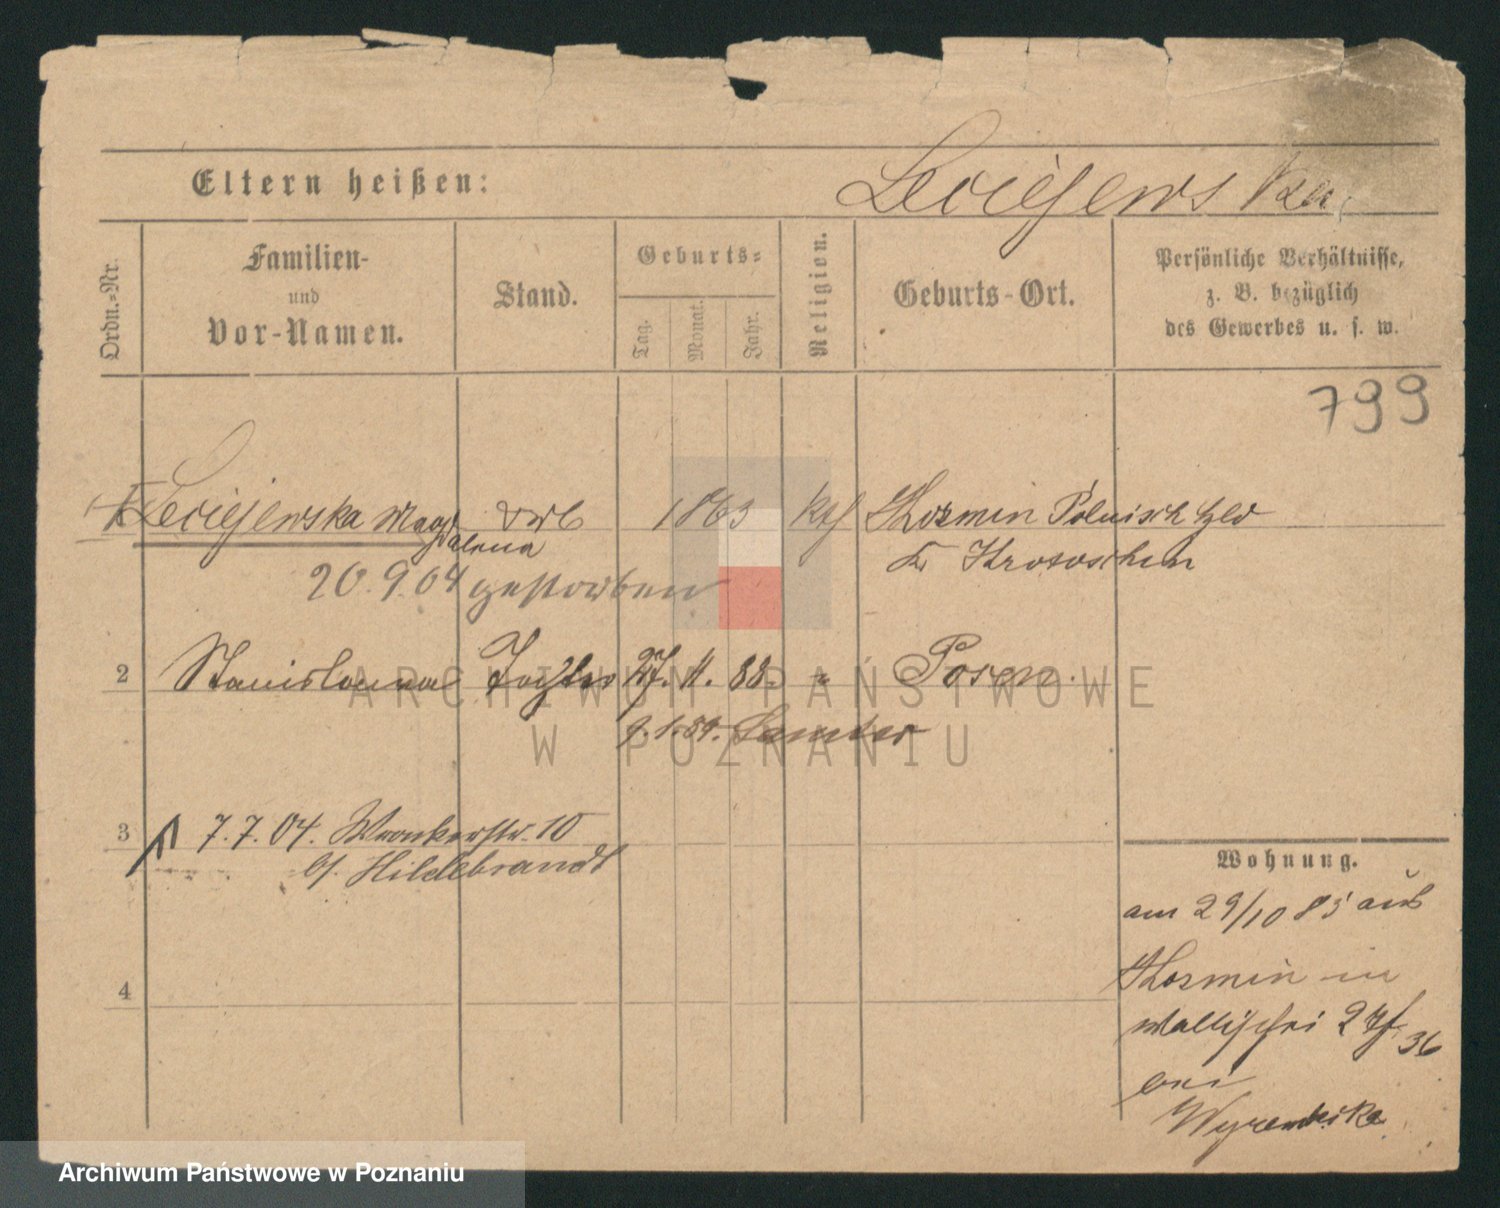 Eltern heißen:
Leciejewska,
Ordn.-Nr.
Familien-
und
Vor-Namen.
Stand.
Geburts-
Tag.
Monat.
Jahr.
Religion.
Geburts-Ort.
Persönliche Verhältnisse,
z. B. bezüglich
des Gewerbes u. s. w.
799
Leciejewska Magdalena 1863 Kth Kozmin Polnisch
Kr Krotoschin
20.9.04 gestorben
2 Stanislawa Tochter 27. 11. 88. " Posen.
9.1.89. Samter
3 7.7.04. Wronkerstr. 10
b/. Hildebrandt
4
Wohnung.
am 29/10 85 aus
Kozmin in
Wallischei 27/36
bei
ARCHIWUM PAŃSTWOWE
W POZNANIU
Archiwum Państwowe w Poznaniu